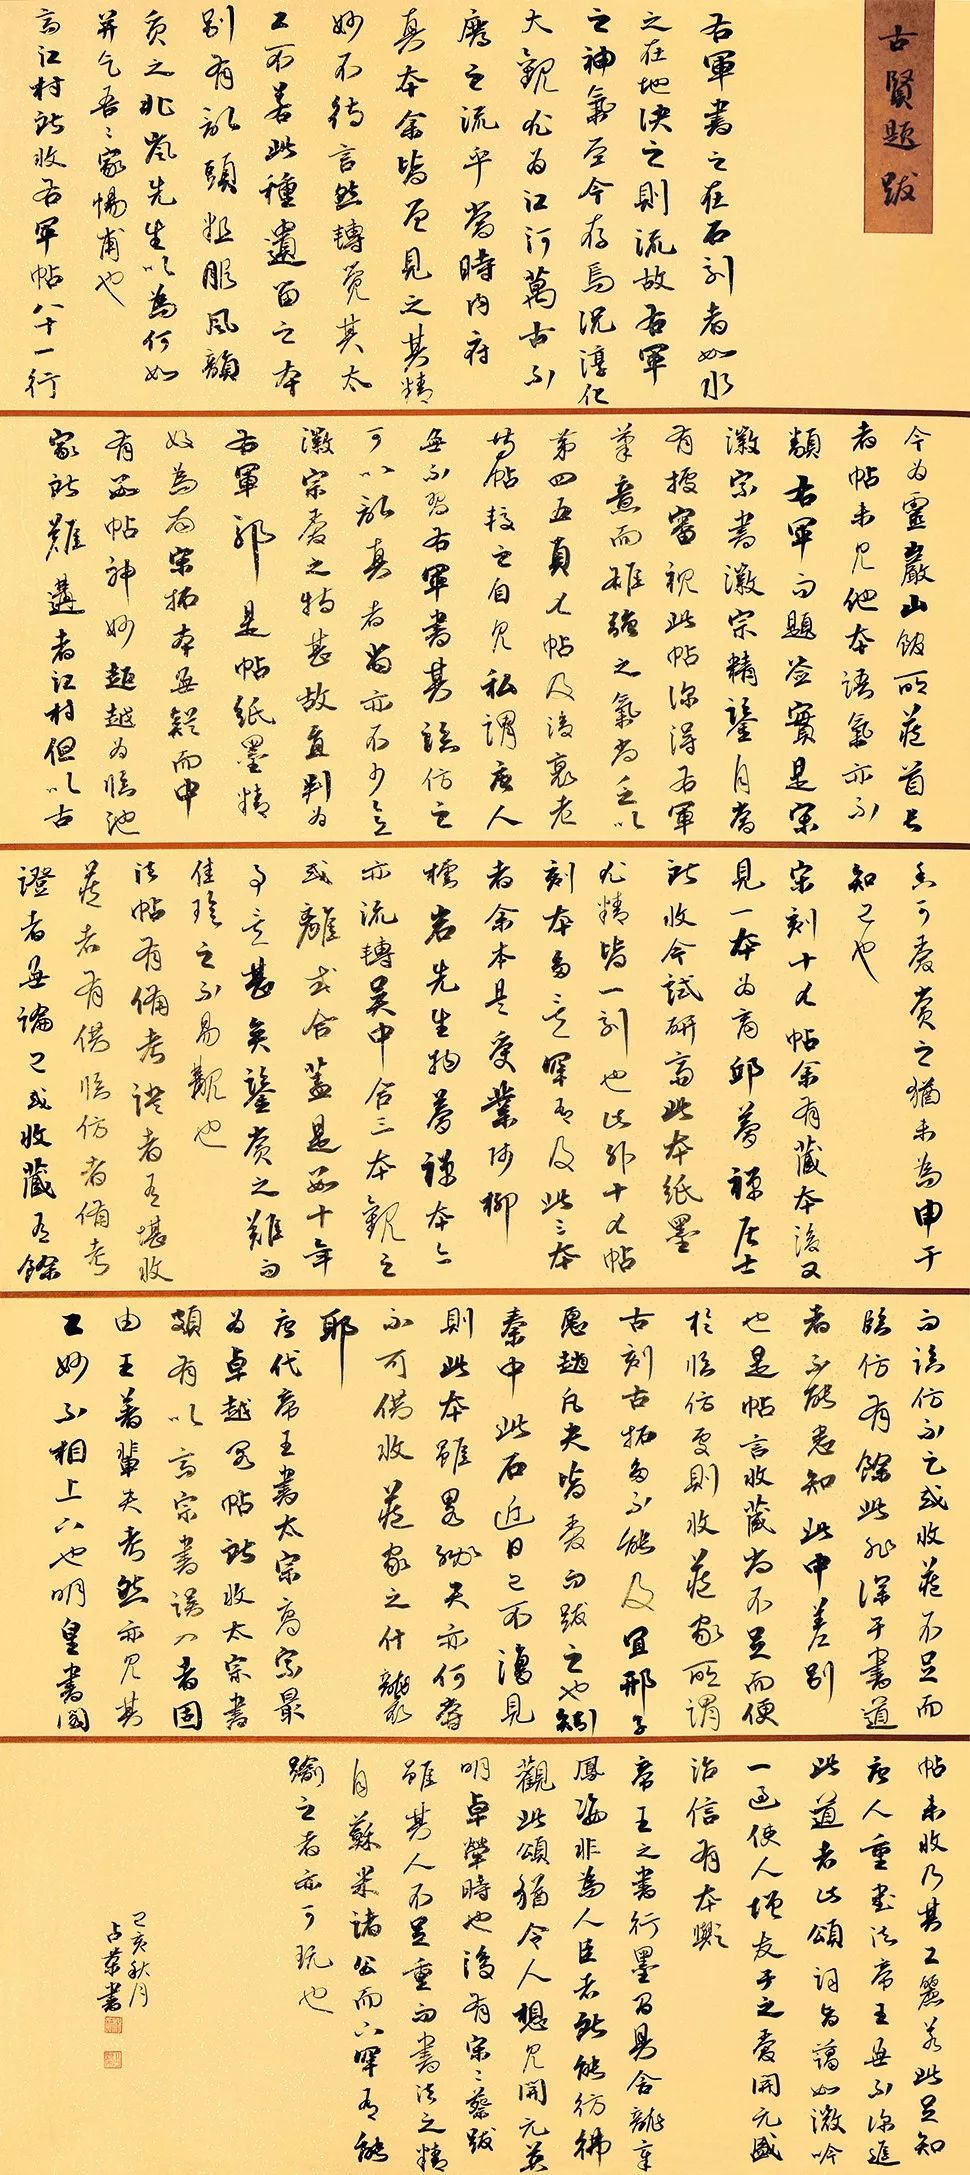 古賢題跋
右軍書之在石刻者如水
之在地决之則流故右軍
之神氣至今存焉況淳化
大觀尤為江河萬古不
廢之流乎當時內府
真本余皆曾見之其精
妙不待言然轉覺其太
工不若此種遺留之本
別有亂頭粗服風韻
質之非嵐先生以為何如
并乞吾家惕甫也
高江村所收右軍帖八十一行
今為靈巖山館所藏首
者帖未見他本語氣亦不
類右軍而題簽實是宋
徽宗書徽宗精鑒自當
有據審視此帖深得右軍
筆意而雄強之氣尚乏以
第四五真七帖及後裹老
帖較之自見私謂唐人
無不習右軍書其臨仿之
可以亂真者當亦不少
徽宗愛之特甚故直判為
右軍耶是帖紙墨精
好為南宋拓本無疑而中
有數帖神妙超越為臨池
家所難遘者江村但以古
可愛賞之猶未為申于
知己也
宋刻十七帖余有藏本後又
見一本為商邱夢禪居士
所收今試研齋此本紙墨
尤精皆一刻也此外十七帖
刻本多罕有及此三本
者余本是受業師柳
橋岩先生物夢禪本今
亦流轉吳中合三本觀之
或離或合蓋是數十年
事甚矣鑒賞之難而
佳珍之不易覯也
法帖有備考證者有堪收
藏者有供臨仿者備考
證者無論已或收藏有餘
而臨仿不足或收藏不足而
臨仿有餘此非深于書道
者不能悉知此中差別
也是帖言收藏尚不足而便
於臨仿更則收藏家所謂
古刻古拓多不能及宜邢子
愿趙凡夫皆愛而跋之也
秦中此石近日已不復見
則此本雖畧殘失亦何嘗
不可供收藏家之什襲
耶
唐代帝王書太宗高宗最
為卓越閣帖所收太宗書
頗有以高宗書誤入者固
由王著輩失考然亦見其
工妙不相上下也明皇書閣
帖未收乃其工麗若此足知
唐人重書法帝王無不深進
此道者此頌詞旨藹如微吟
一過使人增友于之愛開元盛
治信有本歟
帝王之書行墨間具含龍章
鳳姿非為人臣者所能彷彿
觀此頌猶令人想見開元英
明卓犖時也後有宋蔡跋
雖其人不足重而書法之精
自蘇米諸公而下罕有能
踰之者亦可玩也
己亥秋月
占華書